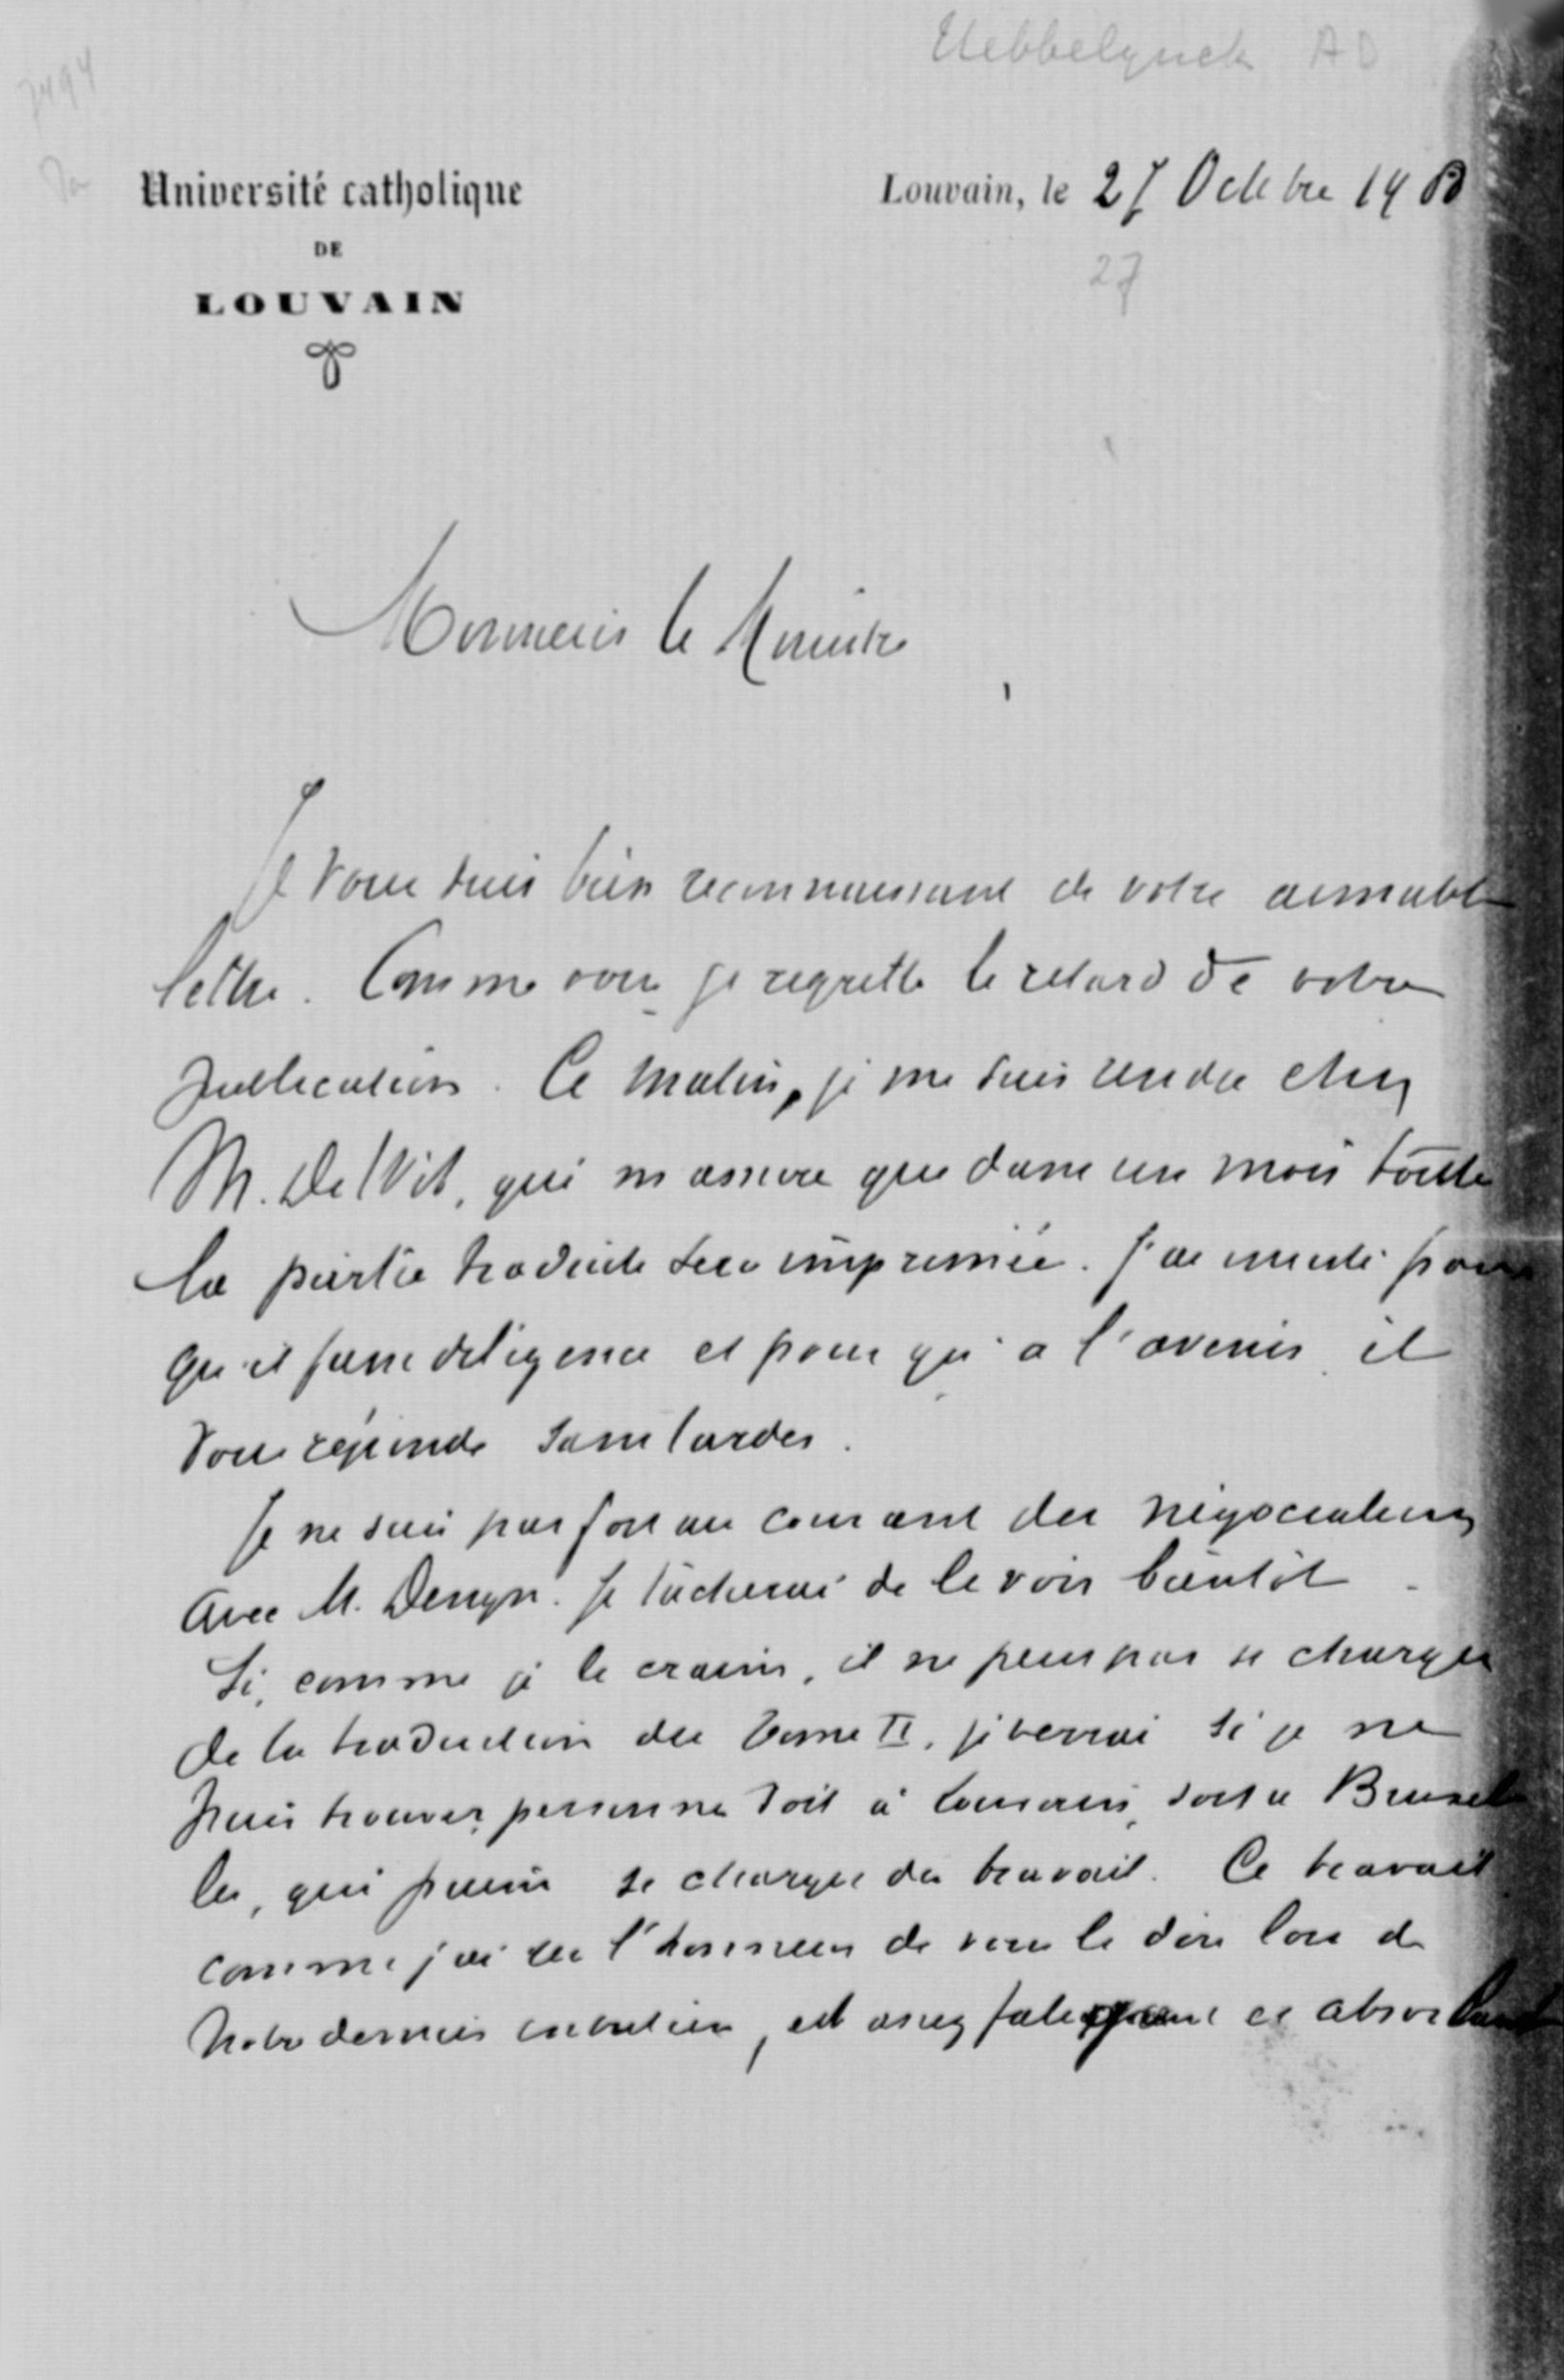 Hebbelynck AD
2494
Université catholique
DE
LOUVAIN
Louvain, le 27 Octobre 19
27
Monsieur le Ministre
,
Je vous suis bien reconnaissant de votre aimable
lettre. Comme vous je regrette le retard de votre
publication. Ce matin, je me suis rendu chez
M. De Wit, qui m'assure que dans un mois toute
la partie traduite sera imprimée. J'ai insisté pour
qu'il fasse diligence et pour qu'à l'avenir il
vous réponde sans tarder.
Je ne suis pas fort au courant des négociations
avec M. Denyn. Je tâcherai de le voir bientôt.
Si, comme je le crains, il ne peut pas se charger
de la traduction du Tome II, je verrai si je ne
puis trouver personne soit à Louvain, soit à Bruxel
les, qui puisse se charger du travail. Ce travail
comme j'ai eu l'honneur de vous le dire lors de
notre dernier entretien, est assez fatiguant et absorbant